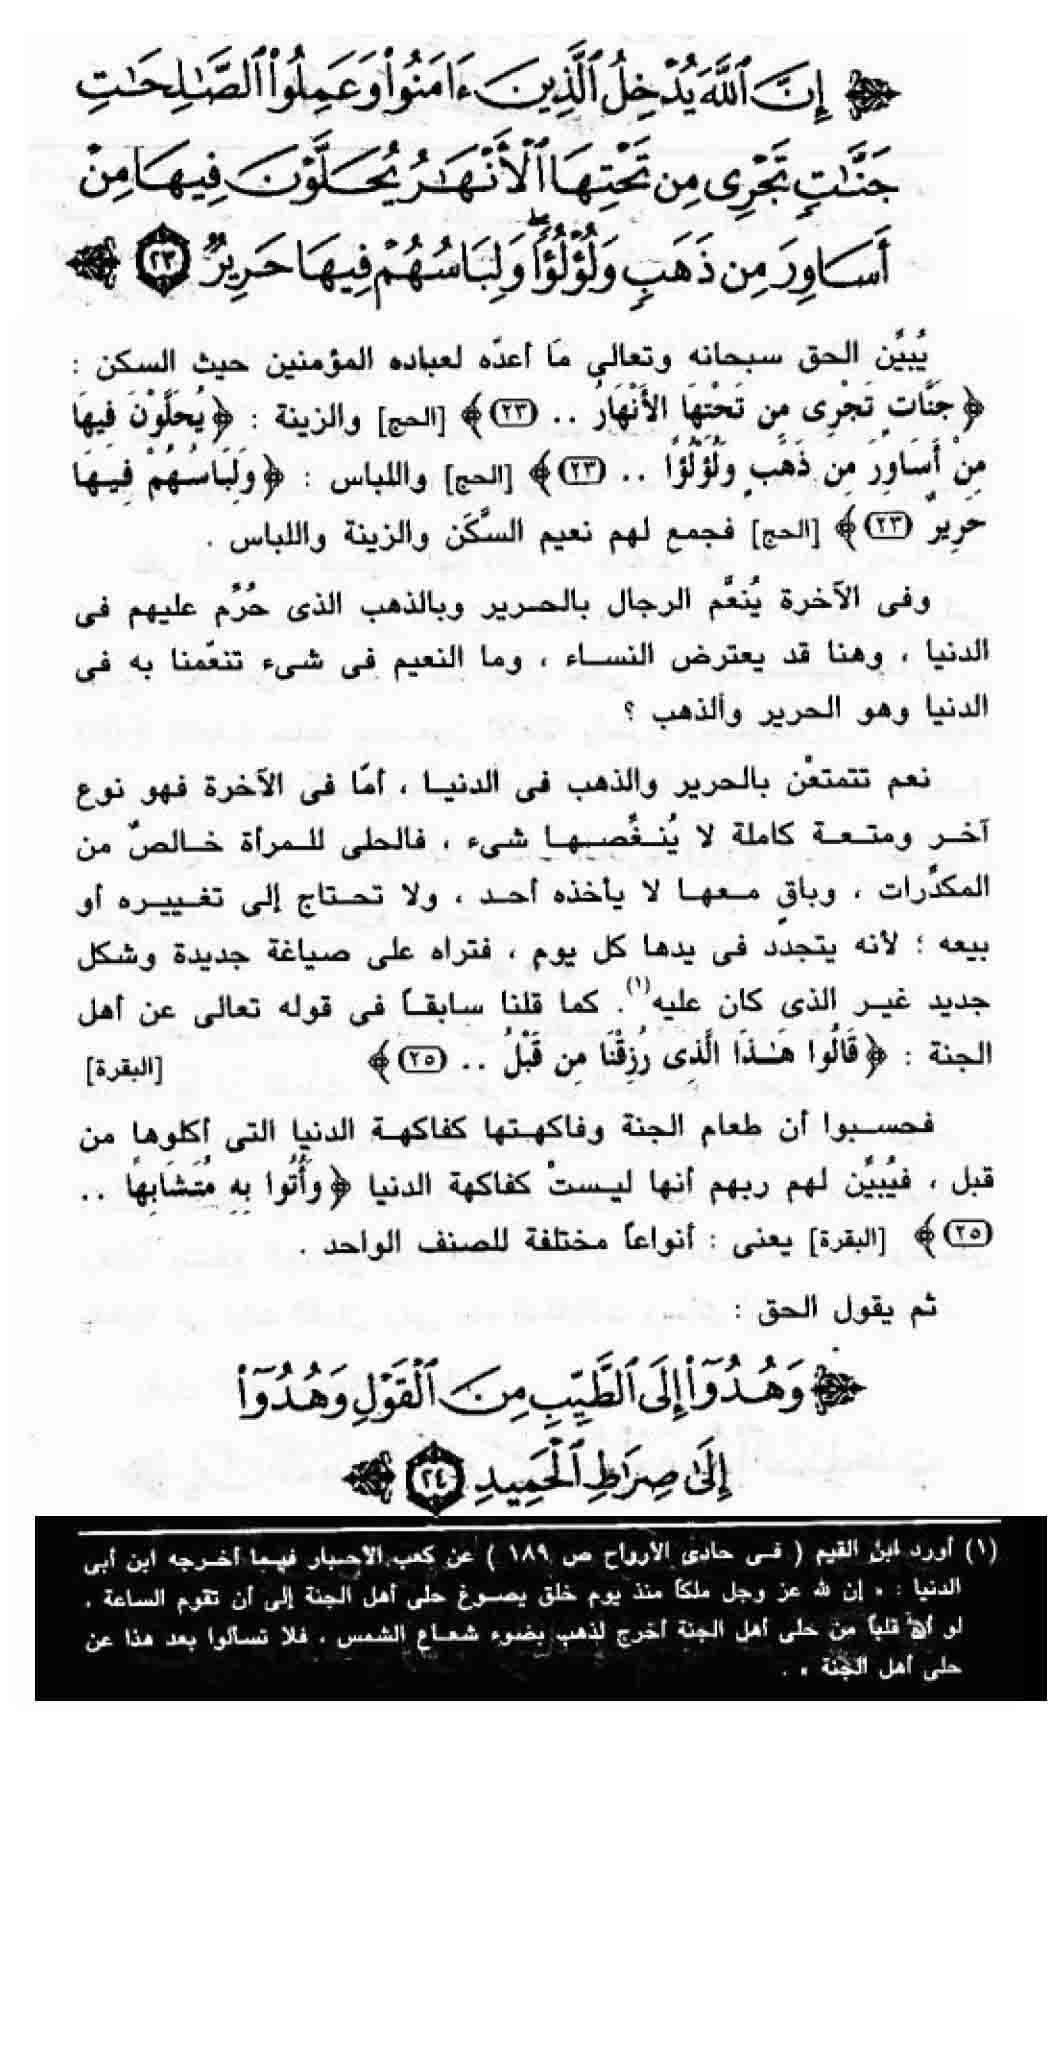 إِنَّ ٱللَّهَ يُدْخِلُ ٱلَّذِينَ ءَامَنُوا۟ وَعَمِلُوا۟ ٱلصَّٰلِحَٰتِ
جَنَّٰتٍ تَجْرِى مِن تَحْتِهَا ٱلْأَنْهَٰرُ يُحَلَّوْنَ فِيهَا مِنْ
أَسَاوِرَ مِن ذَهَبٍ وَلُؤْلُؤًا ۖ وَلِبَاسُهُمْ فِيهَا حَرِيرٌ ٢٣
يُبيِّن الحق سبحانه وتعالى ما أعدّه لعباده المؤمنين حيث السكن :
﴿ جَنَّاتٍ تَجْرِى مِن تَحْتِهَا الأَنْهَارُ .. (٢٣) ﴾ [الحج] والزينة : ﴿ يُحَلَّوْنَ فِيهَا
مِنْ أَسَاوِرَ مِن ذَهَبٍ وَلُؤْلُؤًا .. (٢٣) ﴾ [الحج] واللباس : ﴿ وَلِبَاسُهُمْ فِيهَا
حَرِيرٌ (٢٣) ﴾ [الحج] فجمع لهم نعيم السَّكَن والزينة واللباس .
وفى الآخرة يُنعَّم الرجال بالحرير وبالذهب الذى حُرِّم عليهم فى
الدنيا ، وهنا قد يعترض النساء ، وما النعيم فى شىء تنعّمنا به فى
الدنيا وهو الحرير والذهب ؟
نعم تتمتعْن بالحرير والذهب فى الدنيا ، أمّا فى الآخرة فهو نوع
آخر ومتعة كاملة لا يُنغِّصها شىء ، فالحلى للمرأة خالصٌ من
المكدِّرات ، وباقٍ معها لا يأخذه أحد ، ولا تحتاج إلى تغييره أو
بيعه ؛ لأنه يتجدد فى يدها كل يوم ، فتراه على صياغة جديدة وشكل
جديد غير الذى كان عليه(١). كما قلنا سابقاً فى قوله تعالى عن أهل
الجنة : ﴿ قَالُوا هَـٰذَا الَّذِى رُزِقْنَا مِن قَبْلُ .. (٢٥) ﴾ [البقرة]
فحسبوا أن طعام الجنة وفاكهتها كفاكهة الدنيا التى أكلوها من
قبل ، فيُبيِّن لهم ربهم أنها ليستْ كفاكهة الدنيا ﴿ وَأُتُوا بِهِ مُتَشَابِهًا ..
(٢٥) ﴾ [البقرة] يعنى : أنواعاً مختلفة للصنف الواحد .
ثم يقول الحق :
وَهُدُوٓا۟ إِلَى ٱلطَّيِّبِ مِنَ ٱلْقَوْلِ وَهُدُوٓا۟
إِلَىٰ صِرَٰطِ ٱلْحَمِيدِ ٢٤
(١) أورد ابن القيم ( فى حادى الأرواح ص ١٨٩ ) عن كعب الأحبار فيما أخرجه ابن أبى
الدنيا : « إن لله عز وجل ملكاً منذ يوم خلق يصوغ حلى أهل الجنة إلى أن تقوم الساعة ،
لو أن قلباً من حلى أهل الجنة أخرج لذهب بضوء شعاع الشمس ، فلا تسألوا بعد هذا عن
حلى أهل الجنة » .